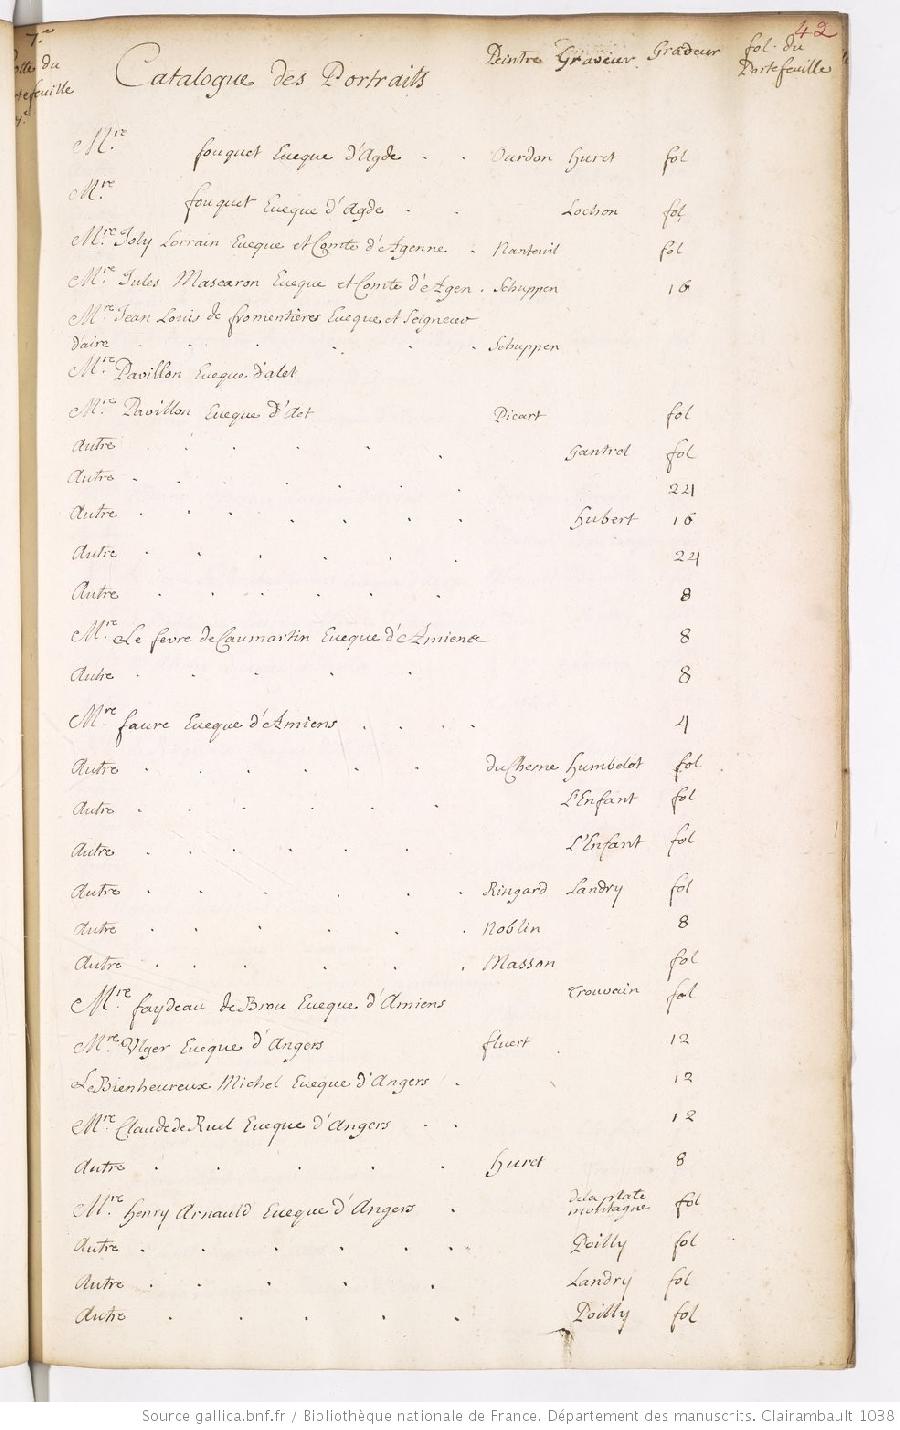 42
7.e
Catalogue des Portraits Peintre Graveur Gradeur fol. du Portefeuille
M.re fouquet Eueque d'Agde . . Durdon Huret fol
M.re fouquet Eueque d'Agde . . Lochon fol
M.re Joly Lorrain Eueque et Comte d'Agenne . Nanteuil fol
M.re Jules Mascaron Eueque et Comte d'Agen . Schuppen 16
M.re Jean Louis de fromentières Eueque et Seigneur
d'aire . . . . . . Schuppen
M.re Pavillon Eueque d'alet
M.re Pavillon Eueque d'Aet Picart fol
Autre . . . . . Gantrel fol
Autre . . . . . . 24
Autre . . . . . . Hubert 16
Autre . . . . . 24
Autre . . . . . . 8
M.re Le fevre de Caumartin Eueque d'Amiens 8
Autre . . . . 8
M.re faure Eueque d'Amiens . . . . 4
Autre . . . . . du Chesne Humbelot fol
Autre . . . . . . L'Enfant fol
Autre . . . . . L'Enfant fol
Autre . . . . . . Ringard Landry fol
Autre . . . . . . Noblin 8
Autre . . . . . . Masson fol
M.re faydeau de Brou Eueque d'Amiens Trouvain fol
M.re Ulger Eueque d'Angers fluert . 12
Le Bienheureux Michel Eueque d'Angers . 12
M.re Claude de Ruel Eueque d'Angers . . 12
Autre . . . . . Huret 8
M.re Henry Arnauld Eueque d'Angers . de la plate montagne fol
Autre . . . . . . Poilly fol
Autre . . . . . Landry fol
Autre . . . . . Poilly fol
Source gallica.bnf.fr / Bibliothèque nationale de France. Département des manuscrits. Clairambault 1038